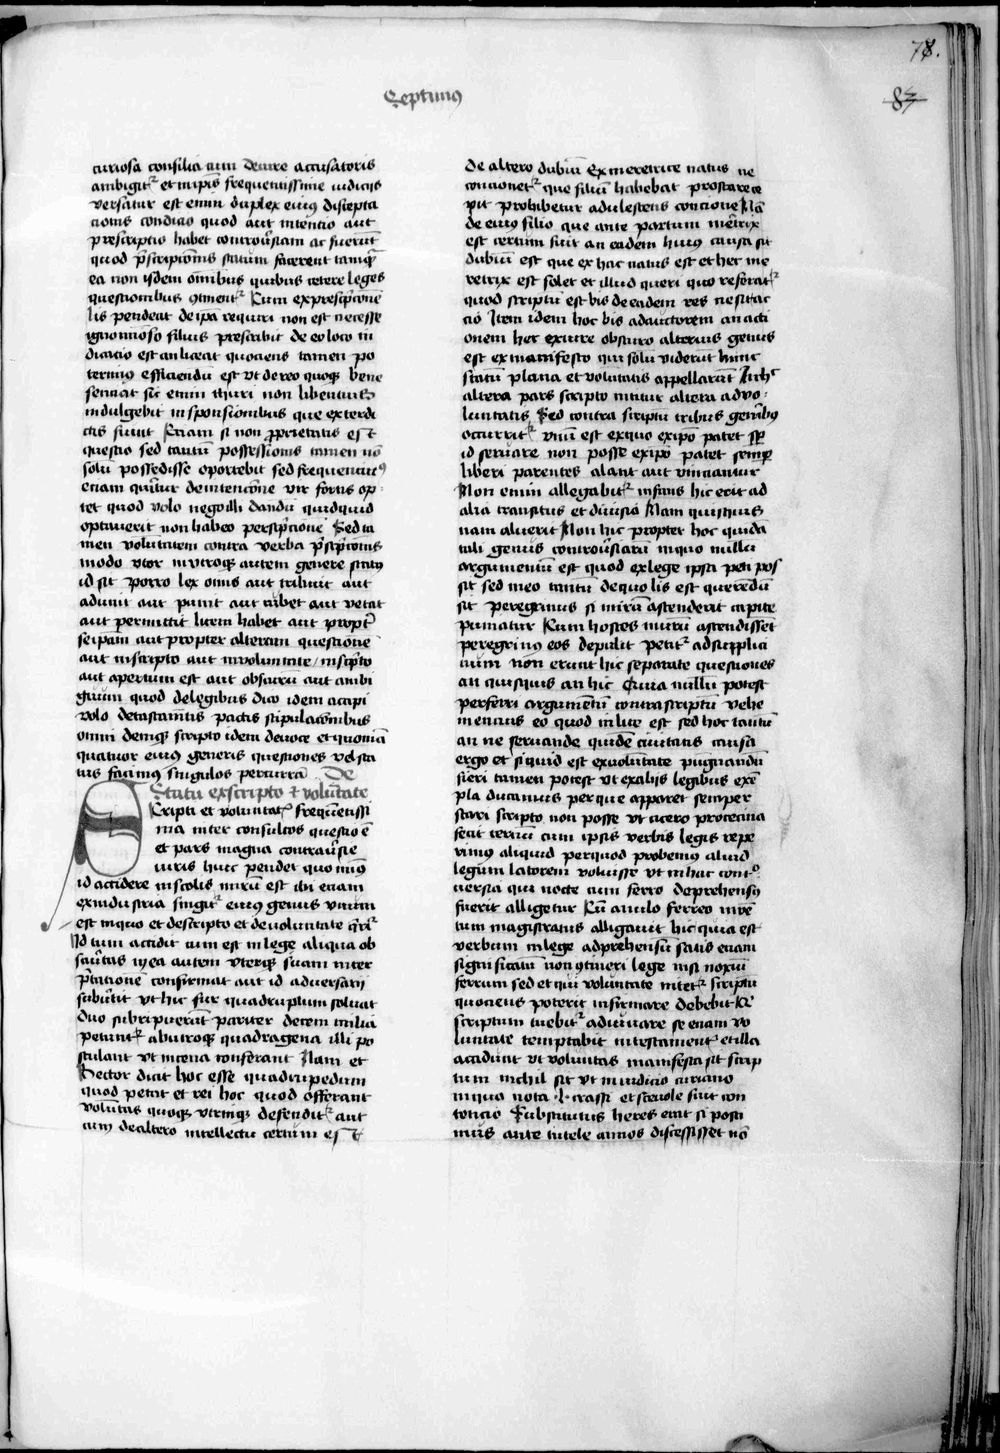 78.
83
Septimus
curiosa consilia cum de iure accusatoris
ambigit᷑ et in ip̄is frequentissime iudiciis
versatur est enim duplex eiꝰ discepta
cionis condicio quod aut intencio aut
prescriptio habet controu̓siam ac fuerūt
quod p̄scripcionis statum facerent tamq̄
ea non isdem om̄ibus quibus cetere leges
questionibus ꝯtinent᷑ Cum ex presc̄pcione
lis pendeat de ip̄a requiri non est necesse
ignominoso filius prescribit de eo loco iu
dicacio est an liceat quociens tamen po
terimꝰ efficiendū est vt de reo quoqꝫ bene
senciat sic enim iuri non libentius
indulgebit in sponsionibus que ex interdi
ctis fiunt Eciam si non ꝓprietatis est
questio sed tantū possessionis tamen nō
solū possedisse oportebit sed
eciam querit᷑ de intencōne vir fortis op
tet quod volo nego illi dandū quidquid
optauerit non habeo presc̄pcionē Sed ta
men voluntatem contra verba p̄sc̄pcōnis
modo vtor in vtroqꝫ autem genere statꝰ
id sit porro lex omis aut tribuit aut
adimit aut punit aut iubet aut vetat
aut permittit litem habet aut propt̓
seipsam aut propter alteram questionē
aut in scripto aut in voluntate / in scp̄to
aut apertum est aut obscurū aut ambi
guum quod de legibus dico idem accipi
volo de testamētis pactis stipulacōnibus
omni deniqꝫ scripto idem de voce et quoniā
quatuor eiꝰ generis questiones vel sta
tus facimꝰ singulos percurrā De
Statu ex scripto et volūtate
Scripti et voluntat᷑ frequētissi
ma inter consultos questio ē
et pars magna controu̓sie
iuris huic pendet quo minꝰ
id accidere in scolis mirū est ibi eciam
ex industria fingit᷑ eiꝰ genus vnum
est in quo et de scripto et de voluntate q̄rit᷑
Id tum accidit cum est in lege aliqua ob
scu̓itas in ea autem vterqꝫ suam inter
p̄tacionē confirmat aut id aduersarii
subu̓tit vt hic fur quadruplum soluat
duo subripuerūt pariter decem milia
petunt᷑ ab vtroqꝫ quadragena illi po
stulant vt vicena conferant Nam et
hector dicit hoc esse quadrupedum
quod petat et rei hoc quod offerant
volūtas quoqꝫ vtrinqꝫ defendit᷑ aut
cum de altero intellectu certum est
de altero dubiū Ex meretrice natus ne
concionet᷑ que filiū habebat prostare ce
pit prohibetur adulescens concione Nā
de eiꝰ filio que ante partum meretrix
est certum fuit an eadem huiꝰ causa sit
dubiū est que ex hac natus est et hec me
retrix est solet et illud queri quo referat᷑
quod scriptū est bis de eadem re ne sit ac
cio Item idem hoc bis ad auctorem an acti
onem hec exiure obscuro alterius genus
est ex manifesto qui solū viderūt hunc
statū plana et voluntatis appellarūt In hoc
altera pars scripto nititur altera a dvo
luntatis Sed contra scriptū tribus generibꝰ
occurrit᷑ vnū est ex quo ex ip̄o patet sp̄
id seruare non posse ex ip̄o patet semp̄
liberi parentes alant aut vinciantur
Non enim allegabit᷑ infans hic erit ad
alia transitus et diuisio Nam quisquis
nam aluerit Non hic propter hoc quidā
tali genus controu̓siarū in quo nullū
argumentū est quod ex lege ipsa peti pos
sit sed meo tantū de quo lis est querēdū
sit peregrinus si murū ascenderit capite
puniatur Cum hostes murū ascendissēt
peregrinꝰ eos depulit petit᷑ ad supplici
cium non erunt hic separate questiones
an quisquis an hic Quia nullū potest
perferri argumentū contra scriptū vehe
mencius eo quod in lite est sed hoc tantū
an ne seruande quidē ciuitatis causa
ergo et si quid est ex voluntate pūgnandū
fieri tamen potest vt ex aliis legibus exē
pla ducamus per que apparet semper
stari scripto non posse vt cicero pro cecina
fecit terciū cum ipsis verbis legis repe
rimꝰ aliquid per quod probemus aliud
legum latorem voluisse vt in hac cont̓o
uersia qui nocte cum ferro deprehensꝰ
fuerit alligetur Cū anulo ferreo inuē
tum magistratus alligauit hic quia est
verbum in lege adprehensū satis eciam
significatū non ꝯtineri lege nisi noxiū
ferrum sed et qui voluntate nitet᷑ scriptū
quociens poterit infirmare debebit Et
scriptum tuebit᷑ adiuuare se eciam vo
luntate temptabit in testament᷑ et illa
accidunt vt voluntas manifesta sit scrip
tum nichil sit vt in iudicio curiano
in quo nota L crassi et sceuole fuit con
tencio Substitutus heres erat si postu
mus ante tutele annos discessisset nō